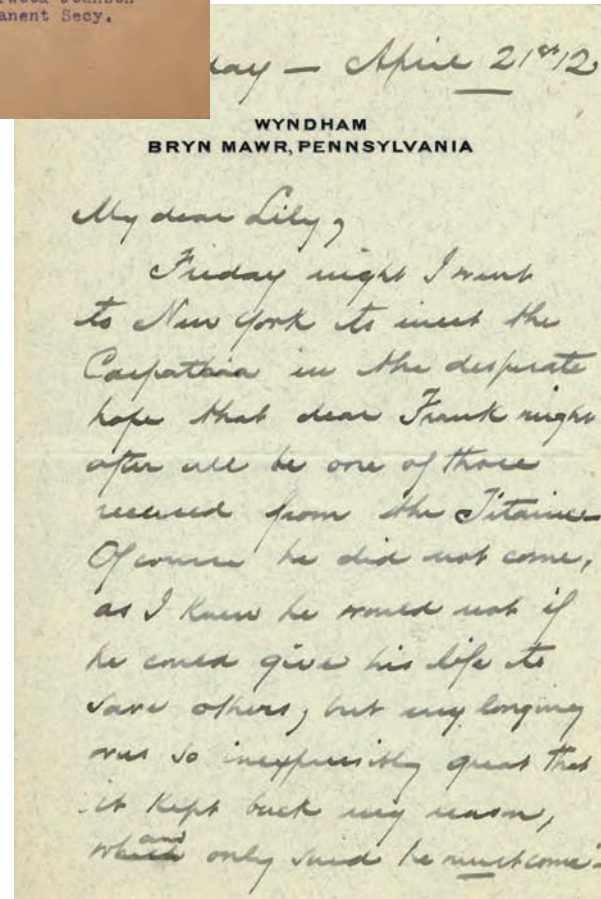 Johnson
anent Secy.
day — April 21st 12
WYNDHAM
BRYN MAWR, PENNSYLVANIA
My dear Lily,
Friday night I went
to New York to meet the
Carpathia in the desperate
hope that dear Frank might
after all be one of those
rescued from the Titanic—
Of course he did not come,
as I knew he would not if
he could give his life to
save others, but my longing
was so inexpressibly great that
it kept back my reason,
which and only said he must come—